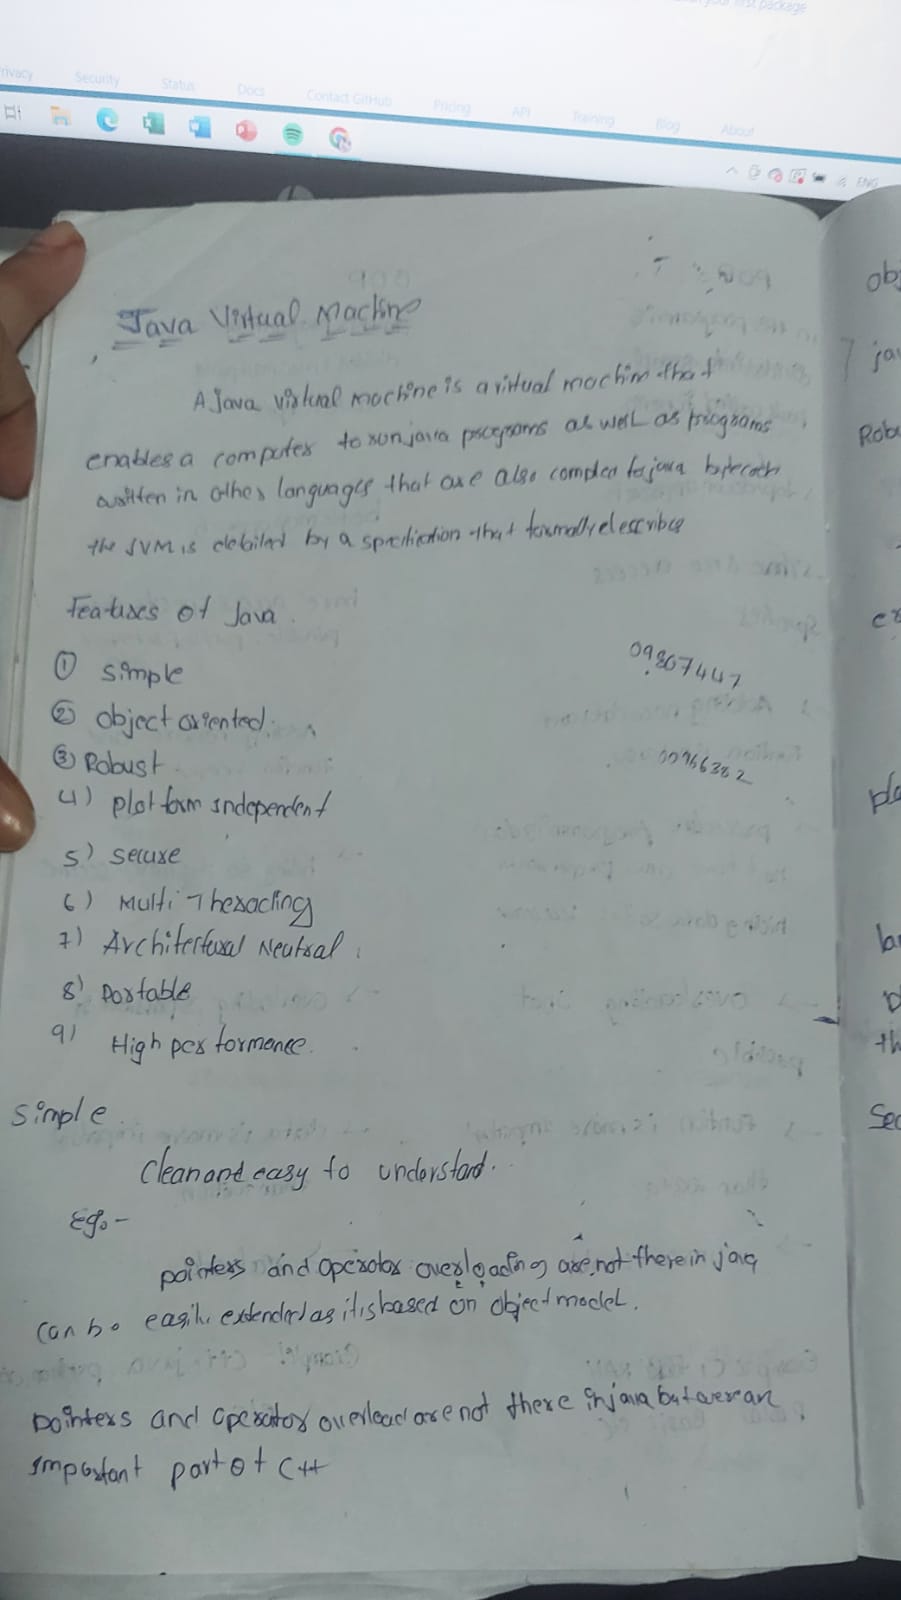 your first package
Privacy Security Status Docs Contact GitHub Pricing API Training Blog About
ENG
Java Virtual Machine
A Java virtual machine is a virtual machim that
enables a computer to run java programs as well as programs
written in other languages that are also compled to java
the JVM is detailed by a that formally describes
Features of Java
① Simple
② object oriented.
③ Robust
4) platform independent
5) Secure
6) Multi Threading
7) Neutral
8) Portable
9) High performance.
09807447
00966382
Simple
Clean and easy to understand.
Eg:-
pointers and operator overloading are not there in java
can be easily extended as it is based on object model.
pointers and operator overload are not there in java but were an
important part of C++
obj
jav
Robu
ex
pla
lan
D
th
Sec